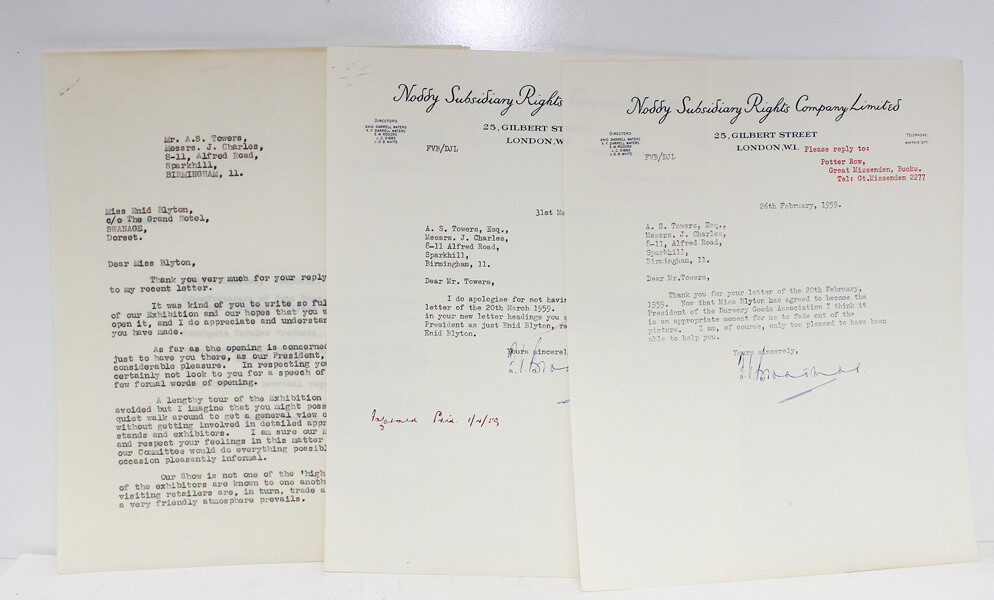 Mr. A.S. Towers,
Messrs. J. Charles,
8-11, Alfred Road,
Sparkhill,
BIRMINGHAM, 11.
Miss Enid Blyton,
c/o The Grand Hotel,
SWANAGE,
Dorset.
Dear Miss Blyton,
Thank you very much for your reply
to my recent letter.
It was kind of you to write so ful
of our Exhibition and our hopes that you w
open it, and I do appreciate and understan
you have made.
As far as the opening is concerned
just to have you there, as our President,
considerable pleasure. In respecting yo
certainly not look to you for a speech of
few formal words of opening.
A lengthy tour of the Exhibition
avoided but I imagine that you might poss
quiet walk around to get a general view o
without getting involved in detailed appr
stands and exhibitors. I am sure our M
and respect your feelings in this matter
our Committee would do everything possibl
occasion pleasantly informal.
Our Show is not one of the 'high
of the exhibitors are known to one anoth
visiting retailers are, in turn, trade a
a very friendly atmosphere prevails.
Noddy Subsidiary Rights
DIRECTORS
ENID DARRELL WATERS
K. F. DARRELL WATERS
E. W. ROGERS
J. C. GIBBS
J. D. B. WHITE
25, GILBERT ST
LONDON, W.
FVB/DJL
31st Ma
A. S. Towers, Esq.,
Messrs. J. Charles,
8-11 Alfred Road,
Sparkhill,
Birmingham, 11.
Dear Mr. Towers,
I do apologise for not havin
letter of the 20th March 1959.
in your new letter headings you s
President as just Enid Blyton, re
Enid Blyton.
Yours sincerel
Informed Prin. 1/4/59
Noddy Subsidiary Rights Company Limited
DIRECTORS
ENID DARRELL WATERS
K. F. DARRELL WATERS
E. W. ROGERS
J. C. GIBBS
J. D. B. WHITE
25, GILBERT STREET
LONDON, W.1.
TELEPHONE
FVB/DJL
Please reply to:
Potter Row,
Great Missenden, Bucks.
Tel: Gt.Missenden 2277
26th February, 1959.
A. S. Towers, Esq.,
Messrs. J. Charles,
8-11, Alfred Road,
Sparkhill,
Birmingham, 11.
Dear Mr.Towers,
Thank you for your letter of the 20th February,
1959. Now that Miss Blyton has agreed to become the
President of the Nursery Goods Association I think it
is an appropriate moment for me to fade out of the
picture. I am, of course, only too pleased to have been
able to help you.
Yours sincerely,